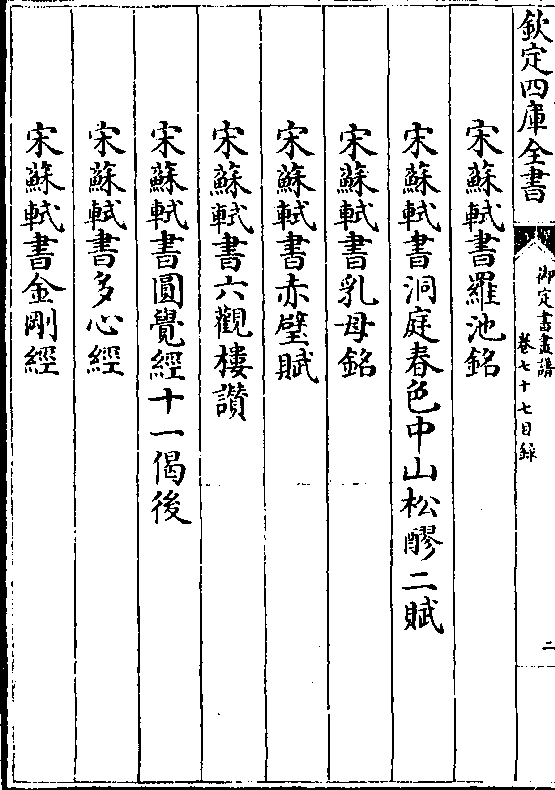 欽定四庫全書
御定書畫譜
卷七十七目錄
二
宋蘇軾書羅池銘
宋蘇軾書洞庭春色中山松醪二賦
宋蘇軾書乳母銘
宋蘇軾書赤壁賦
宋蘇軾書六觀樓讃
宋蘇軾書圓覺經十一偈後
宋蘇軾書多心經
宋蘇軾書金剛經